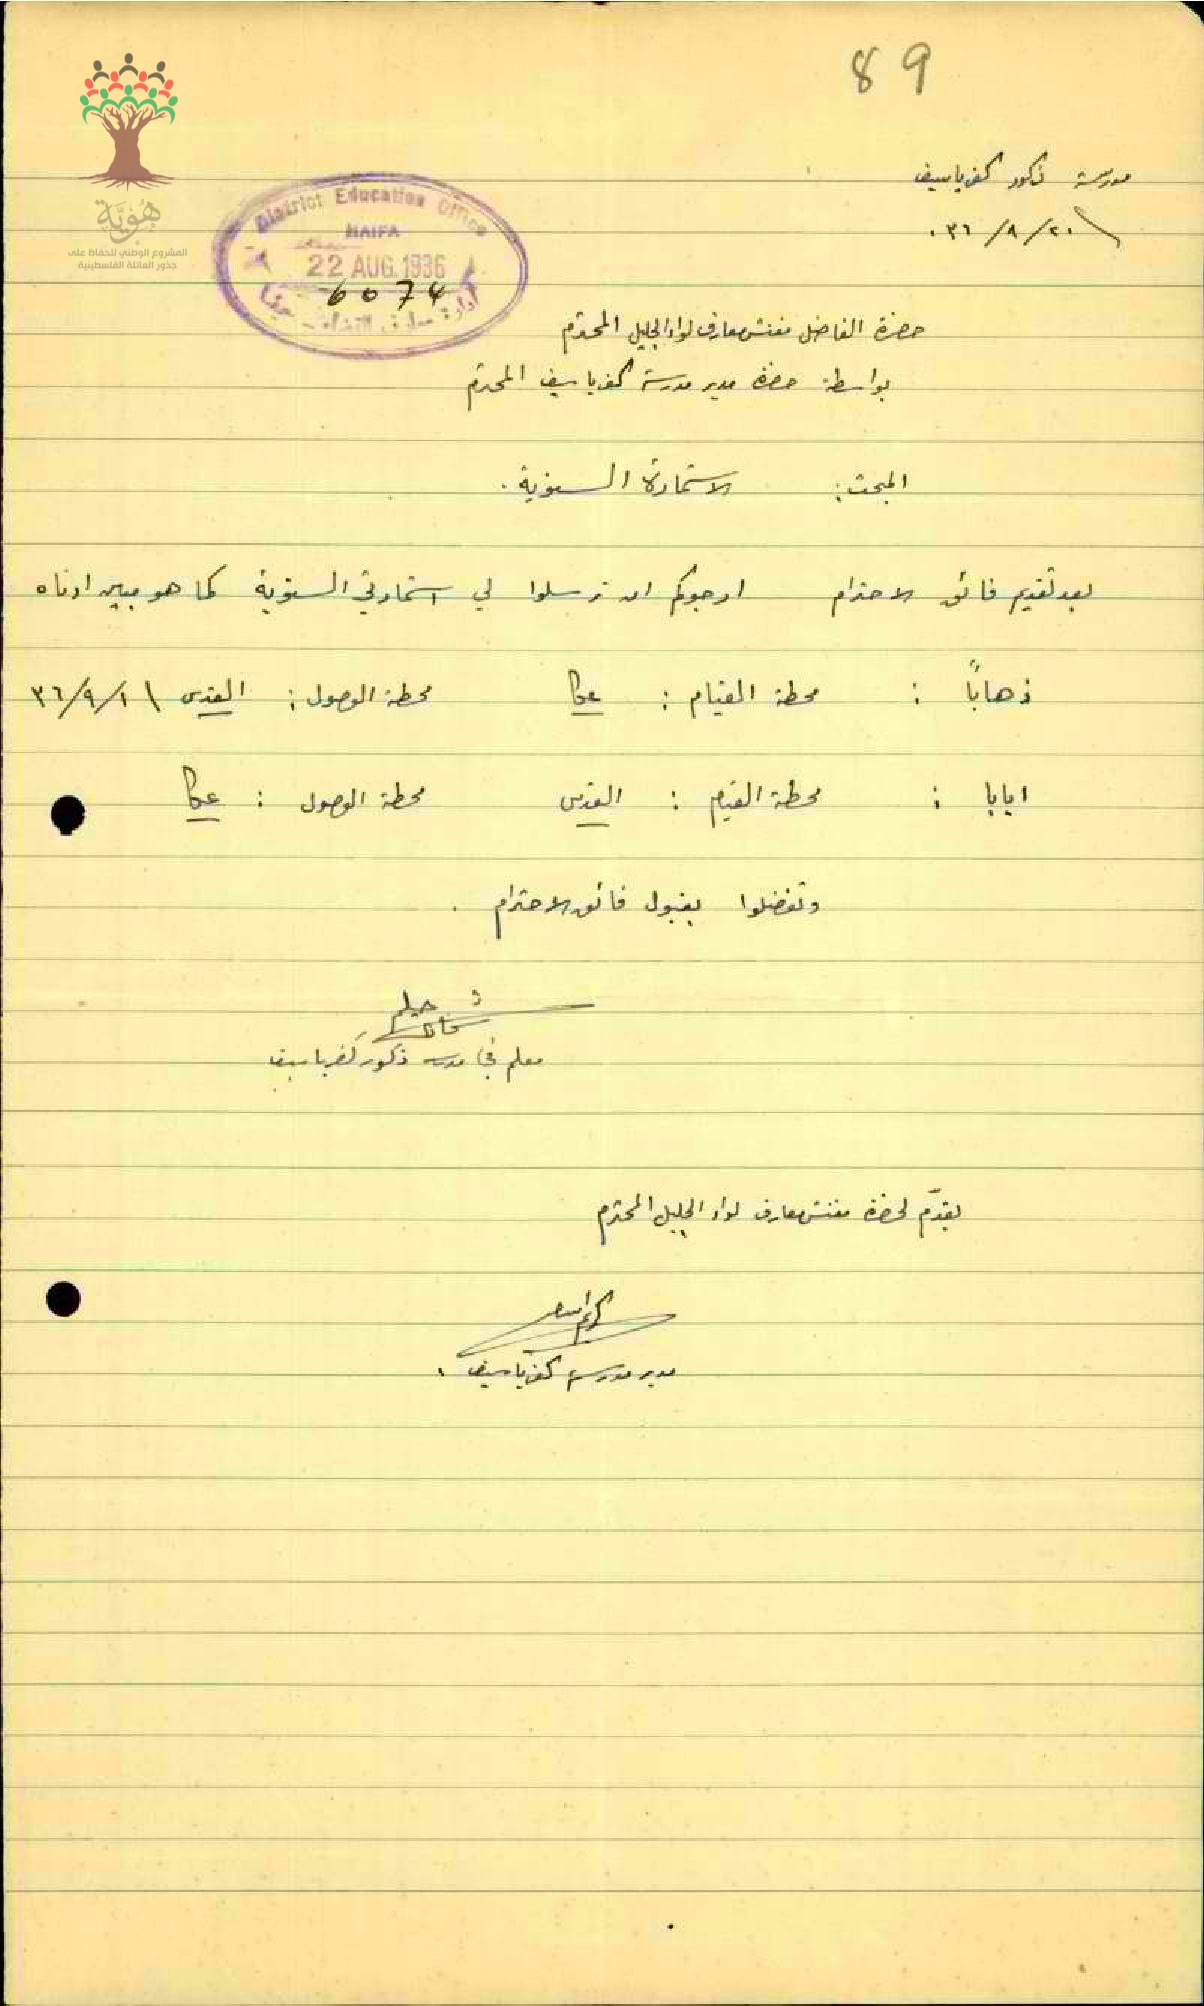 89
هُوِيَّة
المشروع الوطني للحفاظ على
جذور العائلة الفلسطينية
District Education Office
HAIFA
22 AUG. 1936
6074
ادارة معارف حيفا
مدرسة ذكور كفرياسيف
٣٦/٨/٢٠
حضرة الفاضل مفتش معارف لواء الجليل المحترم
بواسطة حضرة مدير مدرسة كفرياسيف المحترم
المبحث: الاستمارة السنوية.
بعد تقديم فائق الاحترام ارجوكم ان ترسلوا لي استمارتي السنوية كما هو مبين ادناه
ذهاباً : محطة القيام : عكا محطة الوصول : القدس ٣٦/٩/١
ايابا : محطة القيام : القدس محطة الوصول : عكا
وتفضلوا بقبول فائق الاحترام .
معلم في مدرسة ذكور كفرياسيف
يقدّم لحضرة مفتش معارف لواء الجليل المحترم
مدير مدرسة كفرياسيف .